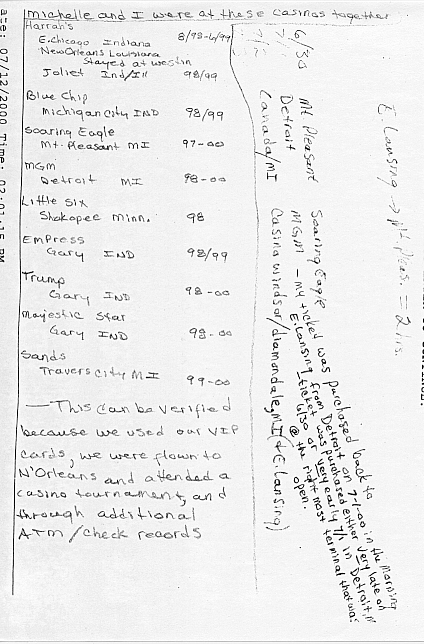 Michelle and I were at these casinos together
Harrah's
E.Chicago Indiana 8/98-6/99
New Orleans Louisiana
Stayed at westin
Joliet Ind/Ill 98/99
Blue Chip
Michigan City IND 98/99
Soaring Eagle
Mt. Pleasant MI 97-00
MGM
Detroit MI 98-00
Little Six
Shakopee Minn. 98
Empress
Gary IND 98/99
Trump
Gary IND 98-00
Majestic Star
Gary IND 98-00
Sands
Travers City MI 99-00
—This can be verified
because we used our VIP
cards, we were flown to
N'Orleans and attended a
casino tournament, and
through additional
ATM/check records
6/30 Mt Pleasant Soaring Eagle
7/1 Detroit MGM - my ticket was purchased back to
E.Lansing from Detroit on 7-1-00 in the morning
ticket was purchased either very late on
6/30 or very early 7/1 in Detroit,
@ the right most terminal that was
open.
Canada/MI Casino windsor/diamondale, MI (+ E. Lansing)
E. Lansing → Mt Pleas. = 2 hrs.
Date: 07/12/2000 Time: